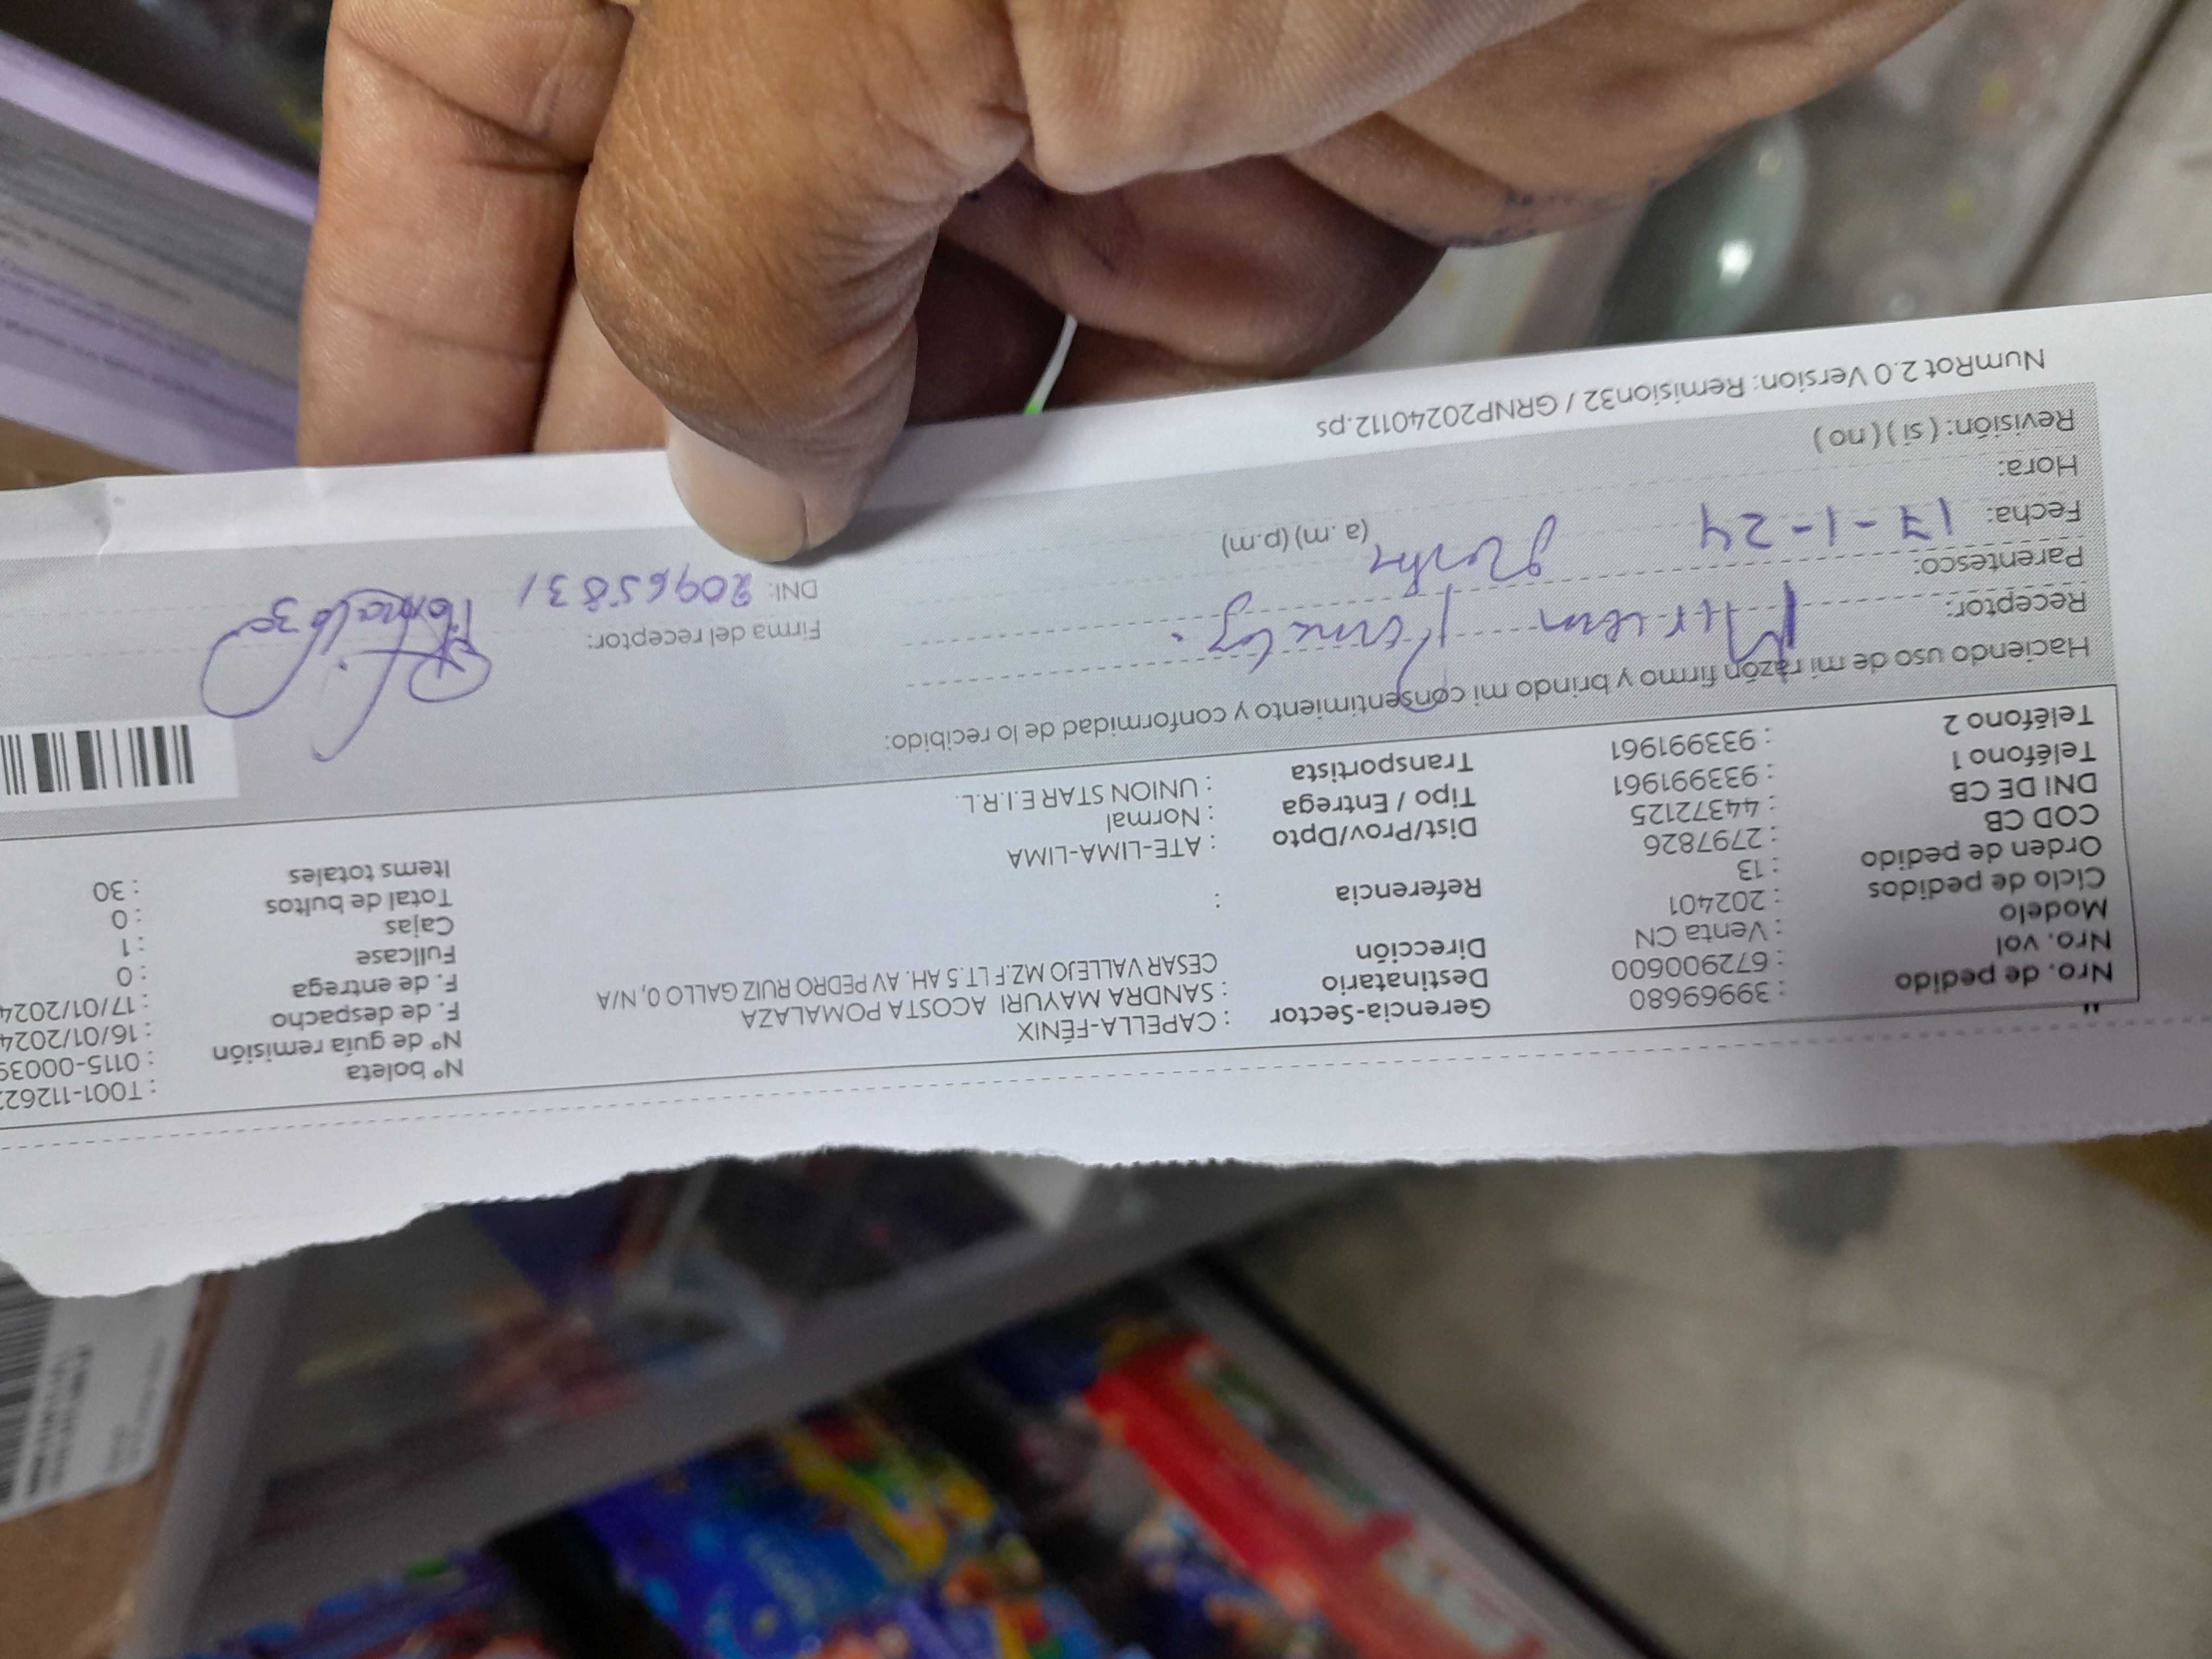 Nro. de pedido : 39969680
Nro. vol : 672900600
Modelo : Venta CN
Ciclo de pedidos : 202401
Orden de pedido : 13
COD CB : 2797826
DNI DE CB : 44372125
Teléfono 1 : 933991961
Teléfono 2 : 933991961
Gerencia-Sector : CAPELLA-FÉNIX
Destinatario : SANDRA MAYURI ACOSTA POMALAZA
Dirección CESAR VALLEJO MZ.F LT.5 AH. AV PEDRO RUIZ GALLO 0, N/A
Referencia :
Dist/Prov/Dpto : ATE-LIMA-LIMA
Tipo / Entrega : Normal
Transportista : UNION STAR E.I.R.L.
N° boleta : T001-11262
N° de guía remisión : 0115-00039
F. de despacho : 16/01/2024
F. de entrega : 17/01/2024
Fullcase : 0
Cajas : 1
Total de bultos : 0
Items totales : 30
Haciendo uso de mi razón firmo y brindo mi consentimiento y conformidad de lo recibido:
Receptor:
Parentesco:
Fecha: 17-1-24
Hora: (a.m) (p.m)
Revisión: ( si ) ( no )
Firma del receptor:
DNI: 20965831
NumRot 2.0 Version: Remision32 / GRNP20240112.ps